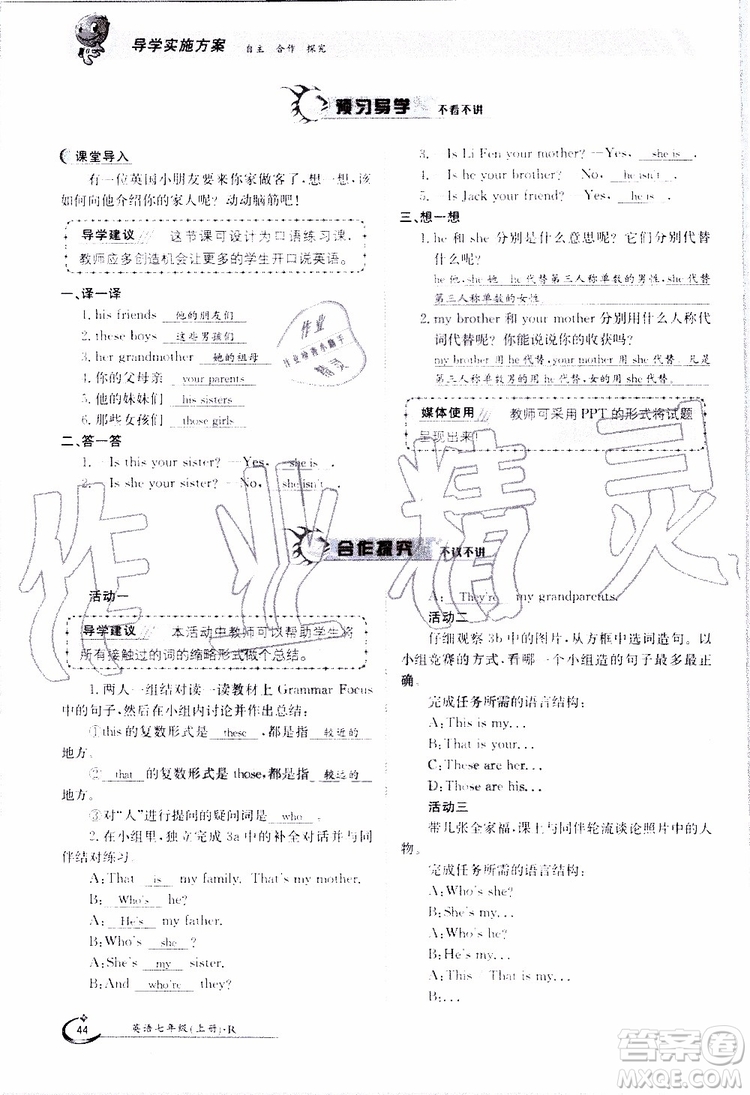 导学实施方案 自主 合作 探究
预习导学 不看不讲
课堂导入
有一位英国小朋友要来你家做客了,想一想,该
如何向他介绍你的家人呢?动动脑筋吧!
导学建议 这节课可设计为口语练习课,
教师应多创造机会让更多的学生开口说英语。
一、译一译
1. his friends 他的朋友们
2. these boys 这些男孩们
3. her grandmother 她的祖母
4. 你的父母亲 your parents
5. 他的妹妹们 his sisters
6. 那些女孩们 those girls
二、答一答
1. —Is this your sister? —Yes, she is.
2. —Is she your sister? —No, she isn't.
3. —Is Li Fen your mother? —Yes, she is.
4. —Is he your brother? —No, he isn't.
5. —Is Jack your friend? —Yes, he is.
三、想一想
1. he 和 she 分别是什么意思呢?它们分别代替
什么呢?
he 他,she 她 he 代替第三人称单数的男性,she 代替
第三人称单数的女性
2. my brother 和 your mother 分别用什么人称代
词代替呢?你能说说你的收获吗?
my brother 用 he 代替,your mother 用 she 代替 凡是
第三人称单数男的用 he 代替,女的用 she 代替.
媒体使用 教师可采用PPT的形式将试题
呈现出来!
合作探究 不议不讲
活动一
导学建议 本活动中教师可以帮助学生将
所有接触过的词的缩略形式做个总结。
1. 两人一组结对读一读教材上 Grammar Focus
中的句子,然后在小组内讨论并作出总结:
①this 的复数形式是 these ,都是指 较近的
地方。
② that 的复数形式是 those,都是指 较远的
地方。
③对“人”进行提问的疑问词是 who 。
2. 在小组里,独立完成 3a 中的补全对话并与同
伴结对练习。
A: That is my family. That's my mother.
B: Who's he?
A: He's my father.
B: Who's she ?
A: She's my sister.
B: And who're they?
A: They're my grandparents.
活动二
仔细观察 3b 中的图片,从方框中选词造句。以
小组竞赛的方式,看哪一个小组造的句子最多最正
确。
完成任务所需的语言结构:
A: This is my...
B: That is your...
C: These are her...
D: Those are his...
活动三
带几张全家福,课上与同伴轮流谈论照片中的人
物。
完成任务所需的语言结构:
A: Who's she?
B: She's my...
A: Who's he?
B: He's my...
A: Who're they?
B: ...
44 英语七年级(上册)·R
作业精灵
答案圈